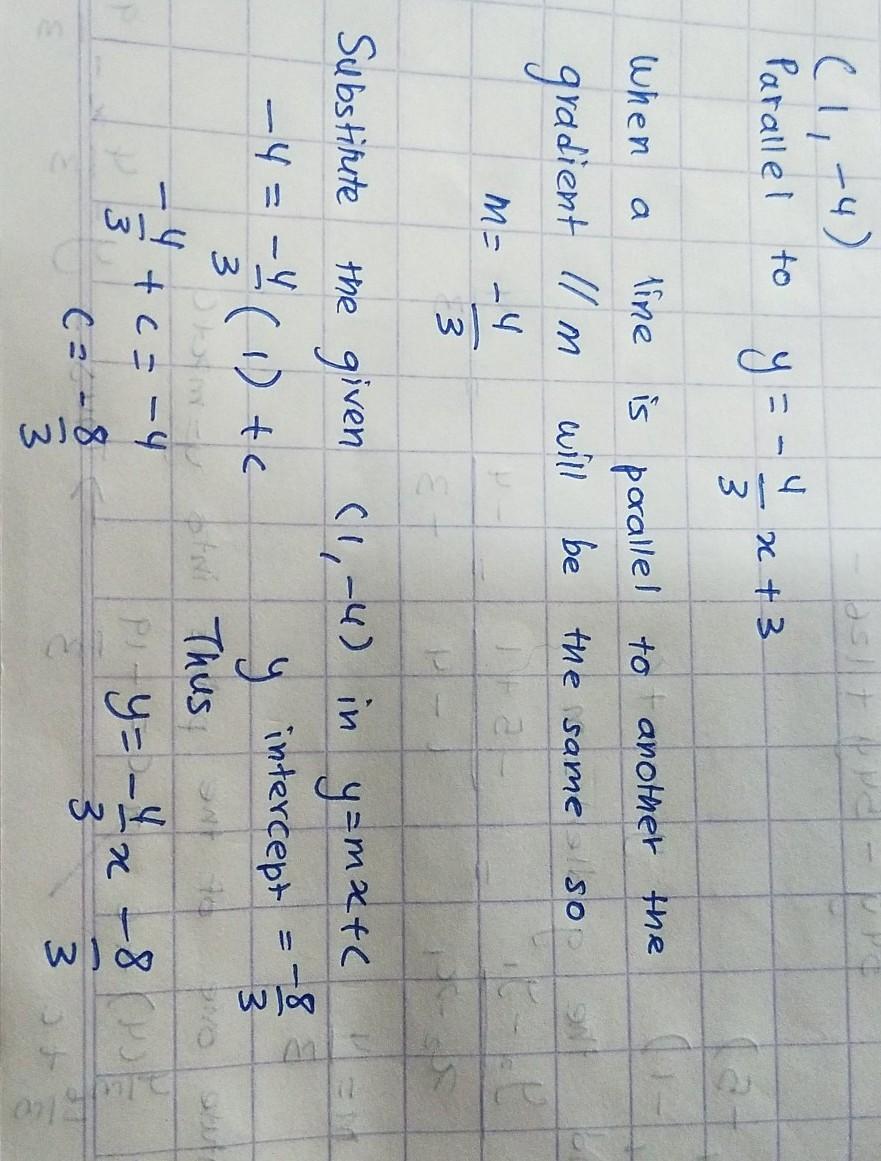 (1, -4)
Parallel to y = - 4/3 x + 3
When a line is parallel to another the
gradient // m will be the same so
m = -4/3
Substitute the given (1, -4) in y=mx+c
-4 = -4/3 (1) + c
y intercept = -8/3
-4/3 + c = -4
Thus,
c = -8/3
y = -4/3 x - 8/3